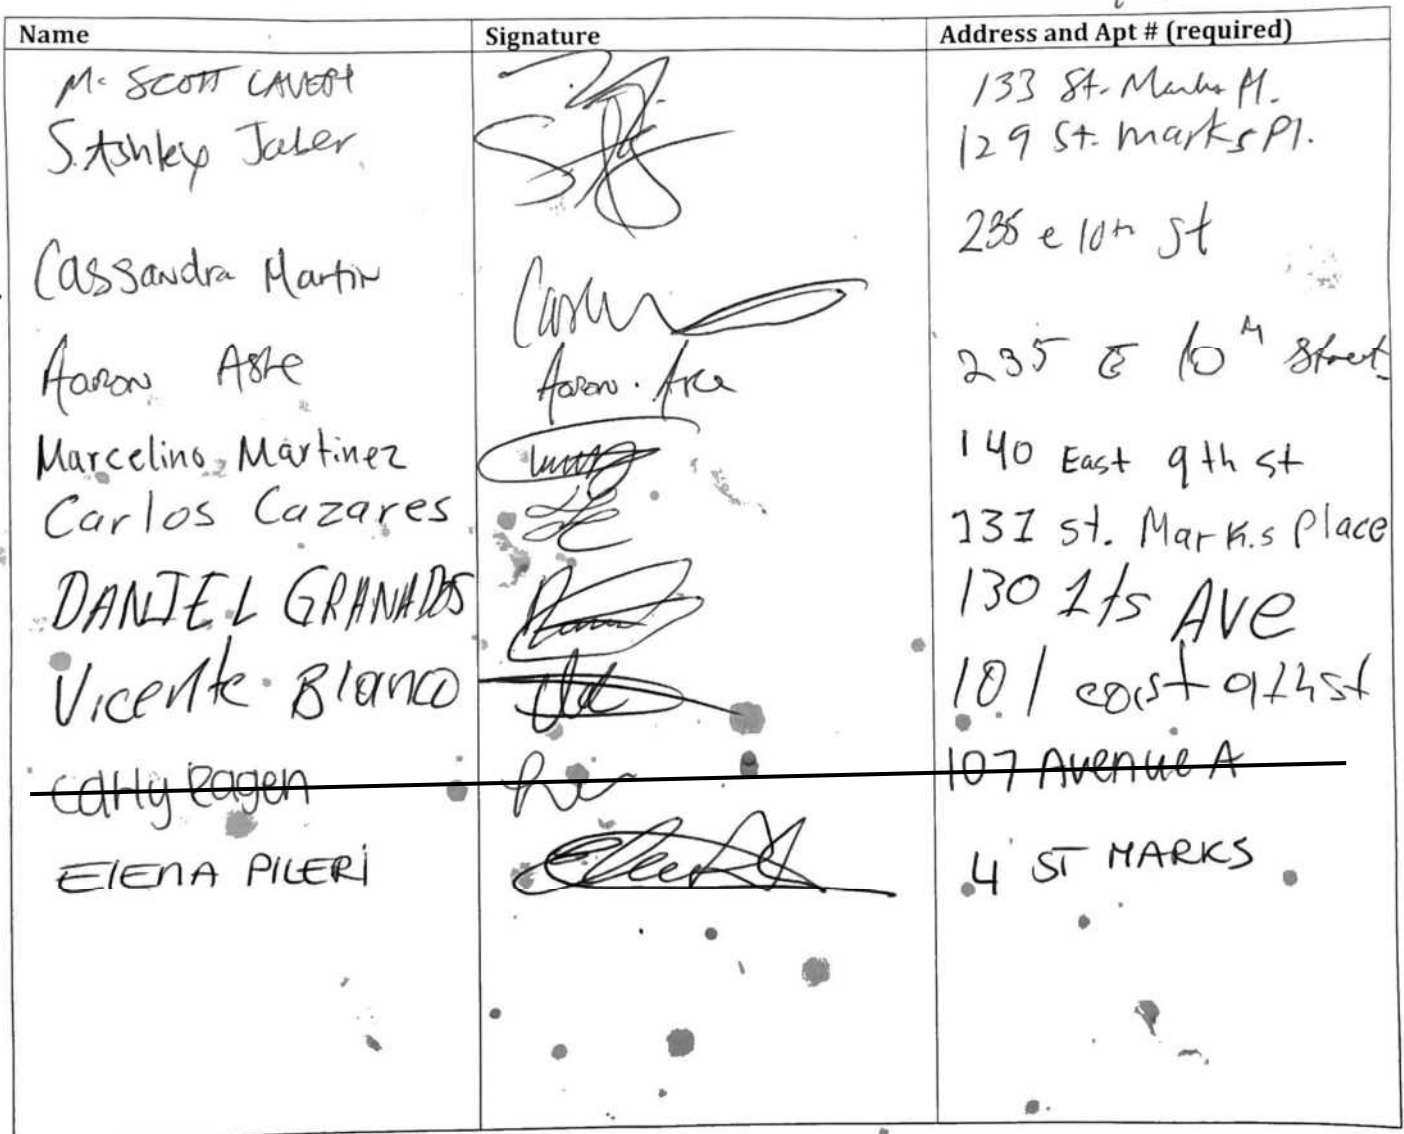 Name Signature Address and Apt # (required)
Mc SCOTT 133 St. Marks Pl.
S. Ashley Jaber 129 St. marks Pl.
Cassandra Martin 235 e 10th St
Aaron Ashe Aaron. 235 E 10th Street
Marcelino Martinez 140 East 9th st
Carlos Cazares 131 st. Mark.s Place
DANIEL GRANADOS 130 1ts AVe
Vicente Blanco 101 east 9th st
Carly Eagen 107 Avenue A
ElENA PILERI 4 ST MARKS